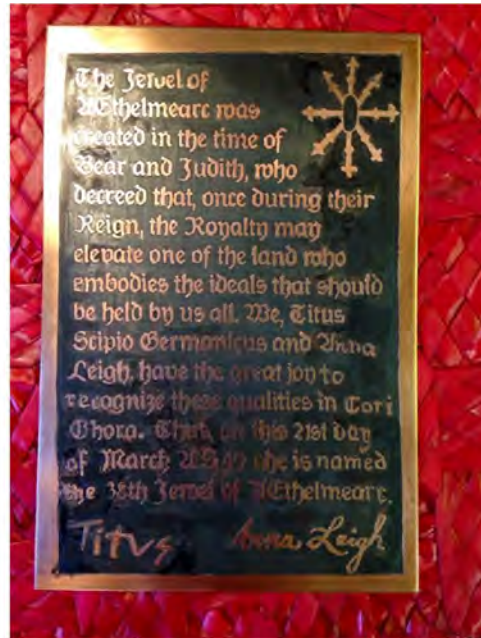 The Jewel of
Æthelmearc was
created in the time of
Bear and Judith, who
decreed that, once during their
Reign, the Royalty may
elevate one of the land who
embodies the ideals that should
be held by us all. We, Titus
Scipio Germanicus and Anna
Leigh, have the great joy to
recognize these qualities in Cori
Ghora. Thus, on this 21st day
of March she is named
the 38th Jewel of Æthelmearc.
Titvs Anna Leigh